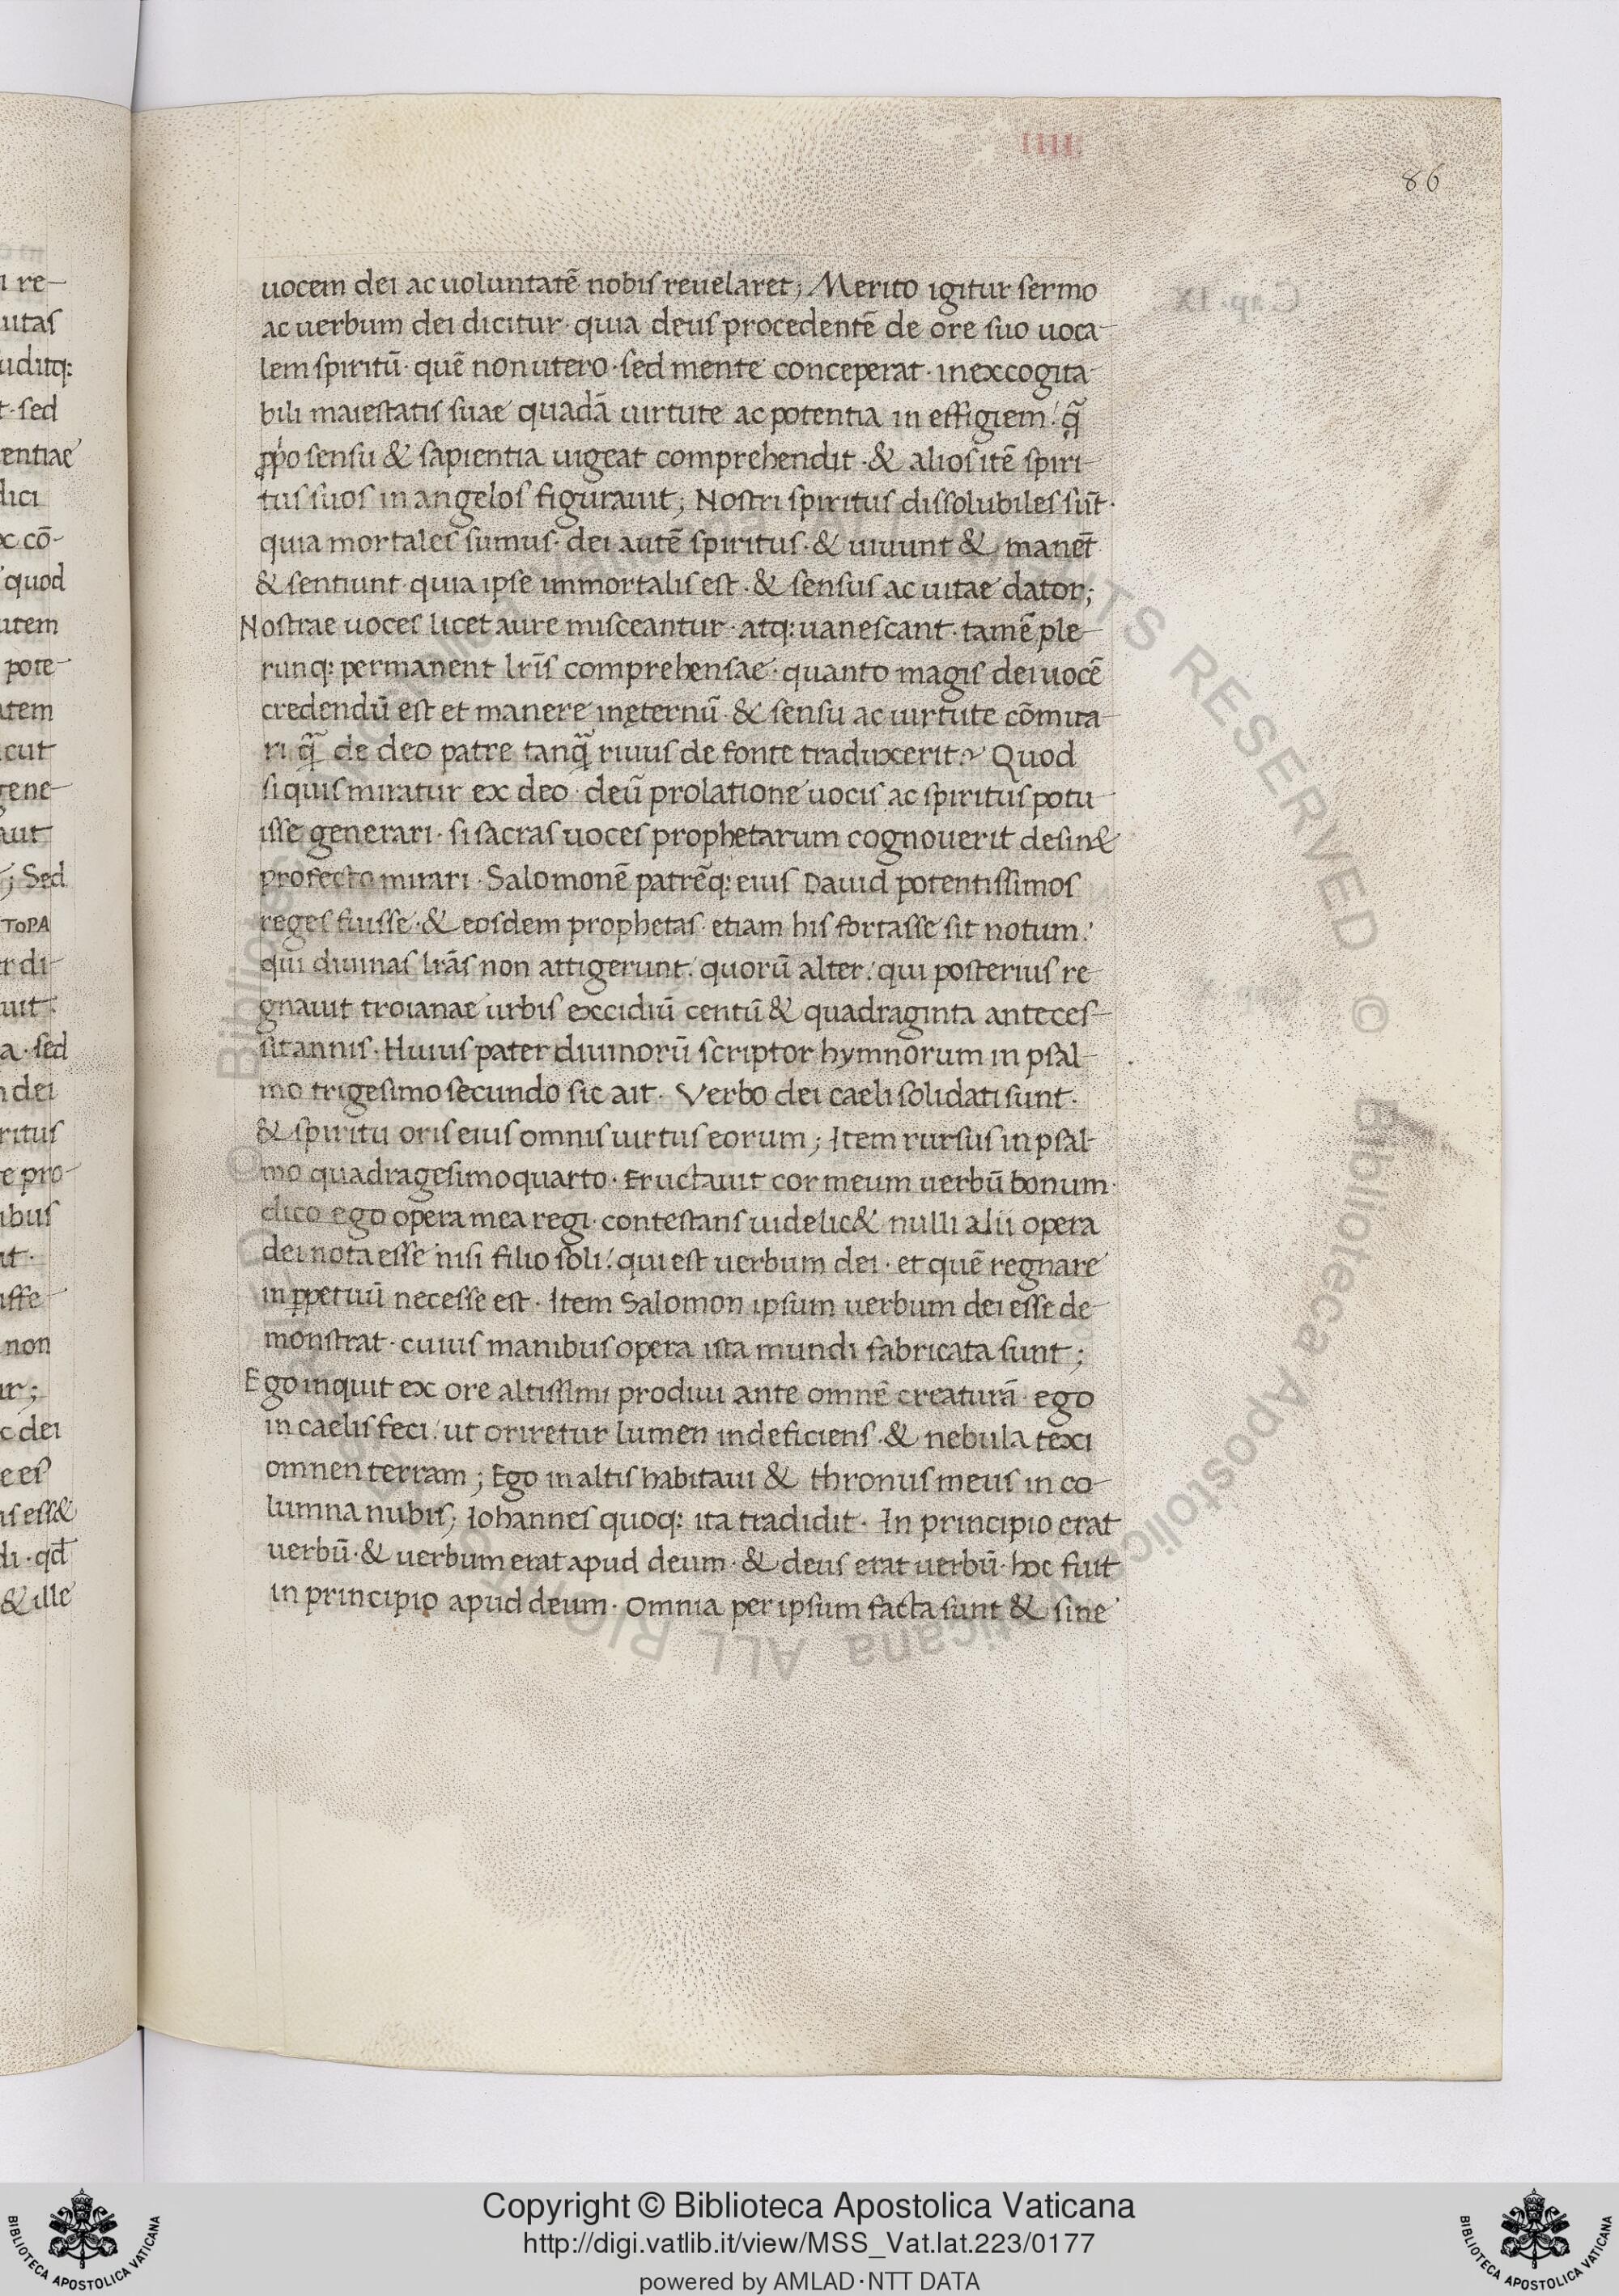 IIII
86
uocem dei ac uoluntatē nobis reuelaret; Merito igitur sermo
ac uerbum dei dicitur· quia deus procedentē de ore suo uoca-
lem spiritū· quē non utero· sed mente conceperat· inexcogita-
bili maiestatis suae quadā uirtute ac potentia in effigiem· q̄
pp̄o sensu & sapientia uigeat comprehendit· & alios itē spiri-
tus suos in angelos figurauit; Nostri spiritus dissolubiles sūt·
quia mortales sumus· dei autē spiritus· & uiuunt & manēt
& sentiunt· quia ipse immortalis est· & sensus ac uitae dator;
Nostrae uoces licet aure misceantur· atq: uanescant· tamē ple-
runq: permanent lr̄is comprehensae· quanto magis dei uocē
credendū est et manere inęternū· & sensu ac uirtute cōmita-
ri q̄ de deo patre tanq̄ riuus de fonte traduxerit? Quod
si quis miratur ex deo· deū prolatione uocis ac spiritus potu-
isse generari· si sacras uoces prophetarum cognouerit desin&
profecto mirari· Salomonē patrēq: eius Dauid potentissimos
reges fuisse· & eosdem prophetas· etiam his fortasse sit notum·
qui diuinas lrās non attigerunt· quorū alter· qui posterius re-
gnauit troianae urbis excidiū centū & quadraginta anteces-
sit annis· Huius pater diuinorū scriptor hymnorum in psal-
mo trigesimo secundo sic ait· Verbo dei caeli solidati sunt·
& spiritu oris eius omnis uirtus eorum; Item rursus in psal-
mo quadragesimoquarto· Eructauit cor meum uerbū bonum·
dico ego opera mea regi· contestans uidelic& nulli alii opera
dei nota esse nisi filio soli· qui est uerbum dei· et quē regnare
in ꝑpetuū necesse est· Item Salomon ipsum uerbum dei esse de-
monstrat· cuius manibus opera ista mundi fabricata sunt;
Ego inquit ex ore altissimi prodiui ante omnē creaturā· ego
in caelis feci· ut oriretur lumen indeficiens· & nebula texi
omnen terram; Ego in altis habitaui & thronus meus in co-
lumna nubis; Iohannes quoq: ita tradidit· In principio erat
uerbū· & uerbum erat apud deum· & deus erat uerbū· hoc fuit
in principio apud deum· Omnia per ipsum facta sunt & sine
Copyright © Biblioteca Apostolica Vaticana
http://digi.vatlib.it/view/MSS_Vat.lat.223/0177
powered by AMLAD·NTT DATA